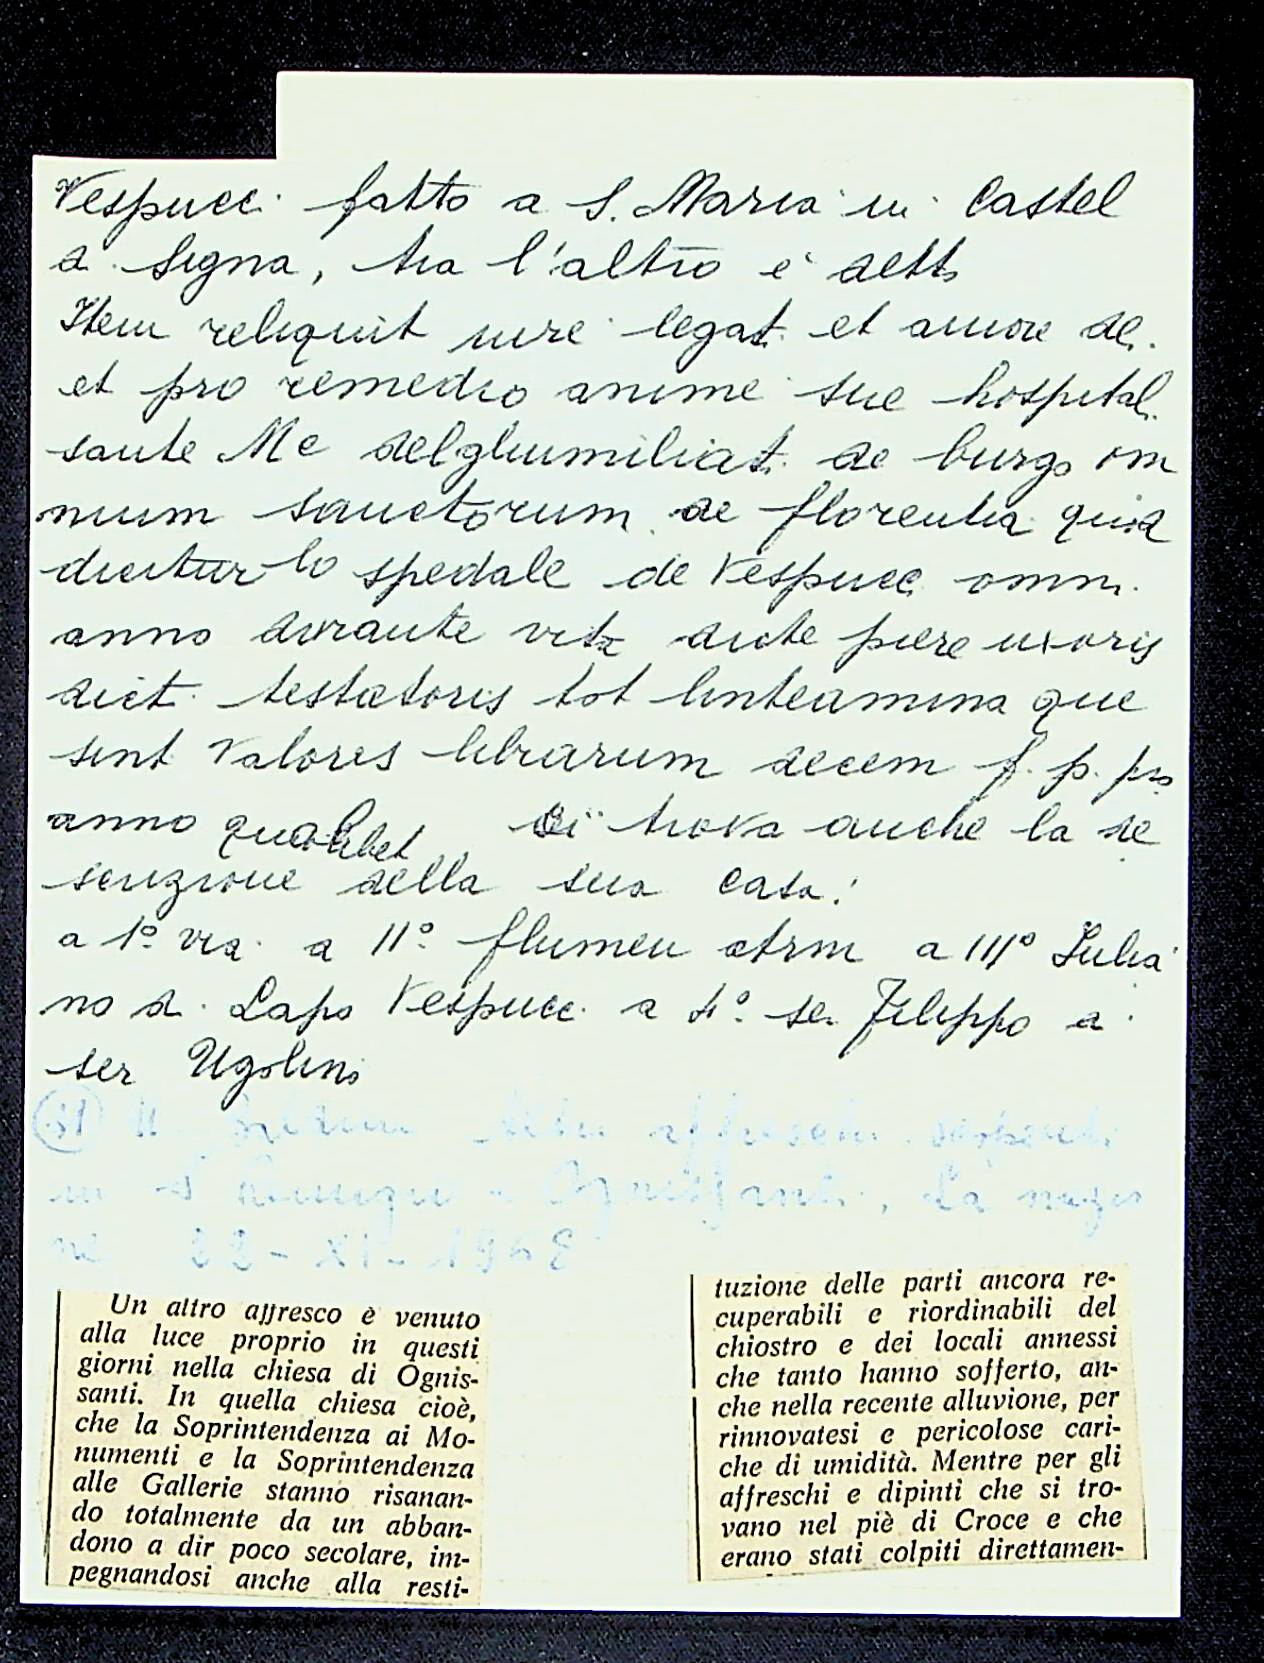 Vespucci fatto a S. Maria in Castel
a Signa, tra l'altro è detto
Item reliquit iure legat. et amore de.
et pro remedio anime sue hospital.
sante Me delghumiliat. de burgo om
nium sanctorum de florentia quid
dicitur lo spedale de Vespucci omni.
anno durante vita dicte piere uxoris
dict. testatoris tot linteamina que
sint valores librarum decem f. p. pro
anno quolibet. Si trova anche la de
scrizione della sua casa:
a 1º via a IIº flumen a IIIº Julia
no d. Lapo Vespucci a 4º ser Filippo a
ser Ugolino
affreschi
in S. Ognissanti, La nazio
ne 22-XI-1968
Un altro affresco è venuto
alla luce proprio in questi
giorni nella chiesa di Ognis-
santi. In quella chiesa cioè,
che la Soprintendenza ai Mo-
numenti e la Soprintendenza
alle Gallerie stanno risanan-
do totalmente da un abban-
dono a dir poco secolare, im-
pegnandosi anche alla resti-
tuzione delle parti ancora re-
cuperabili e riordinabili del
chiostro e dei locali annessi
che tanto hanno sofferto, an-
che nella recente alluvione, per
rinnovatesi e pericolose cari-
che di umidità. Mentre per gli
affreschi e dipinti che si tro-
vano nel piè di Croce e che
erano stati colpiti direttamen-